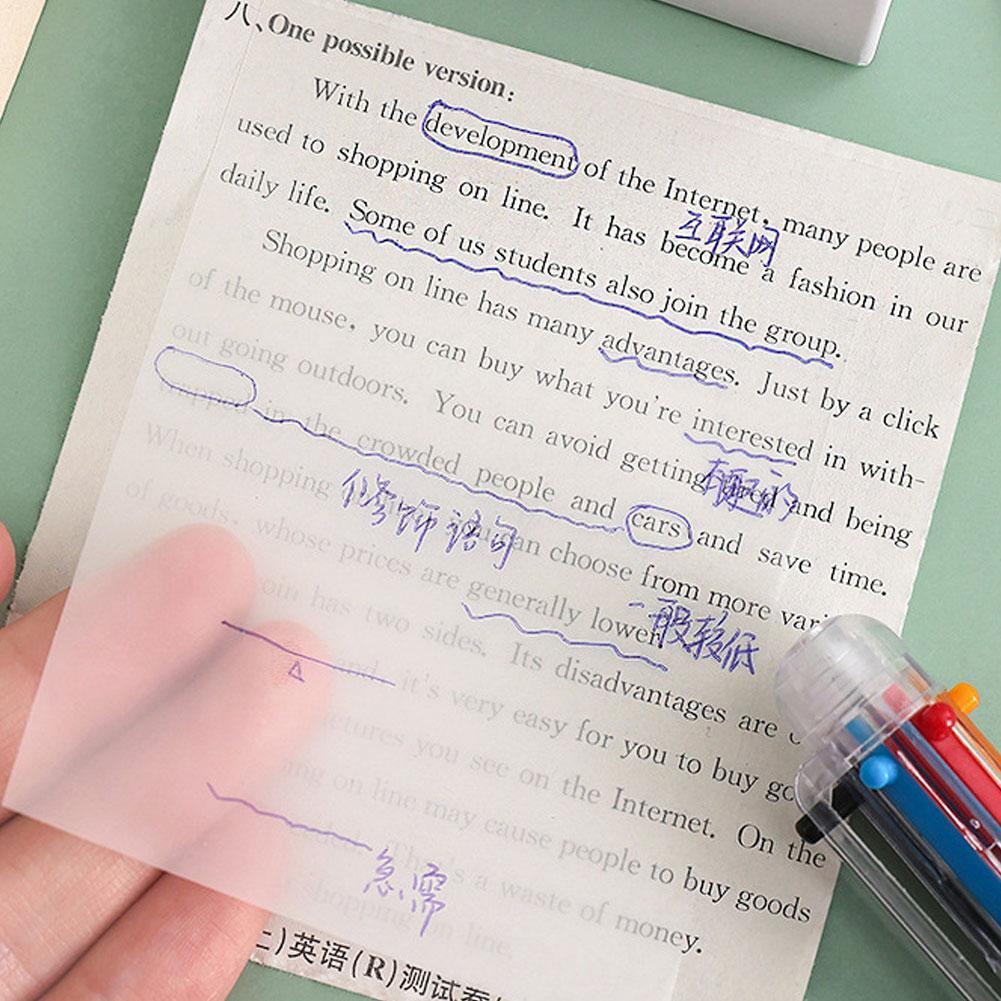 八、One possible version:
With the development of the Internet, many people are
互联网
used to shopping on line. It has become a fashion in our
daily life. Some of us students also join the group.
Shopping on line has many advantages. Just by a click
of the mouse, you can buy what you're interested in with-
out going outdoors. You can avoid getting and being
trapped in the crowded people and cars and save time.
修饰语句
When shopping you can choose from more vari
of goods, whose prices are generally lower
一般较低
oin has two sides. Its disadvantages are
and it's very easy for you to buy go
ctures you see on the Internet. On the
ing on line may cause people to buy goods
ded. That's a waste of money.
急需
shopping on line.
)英语(R)测试卷